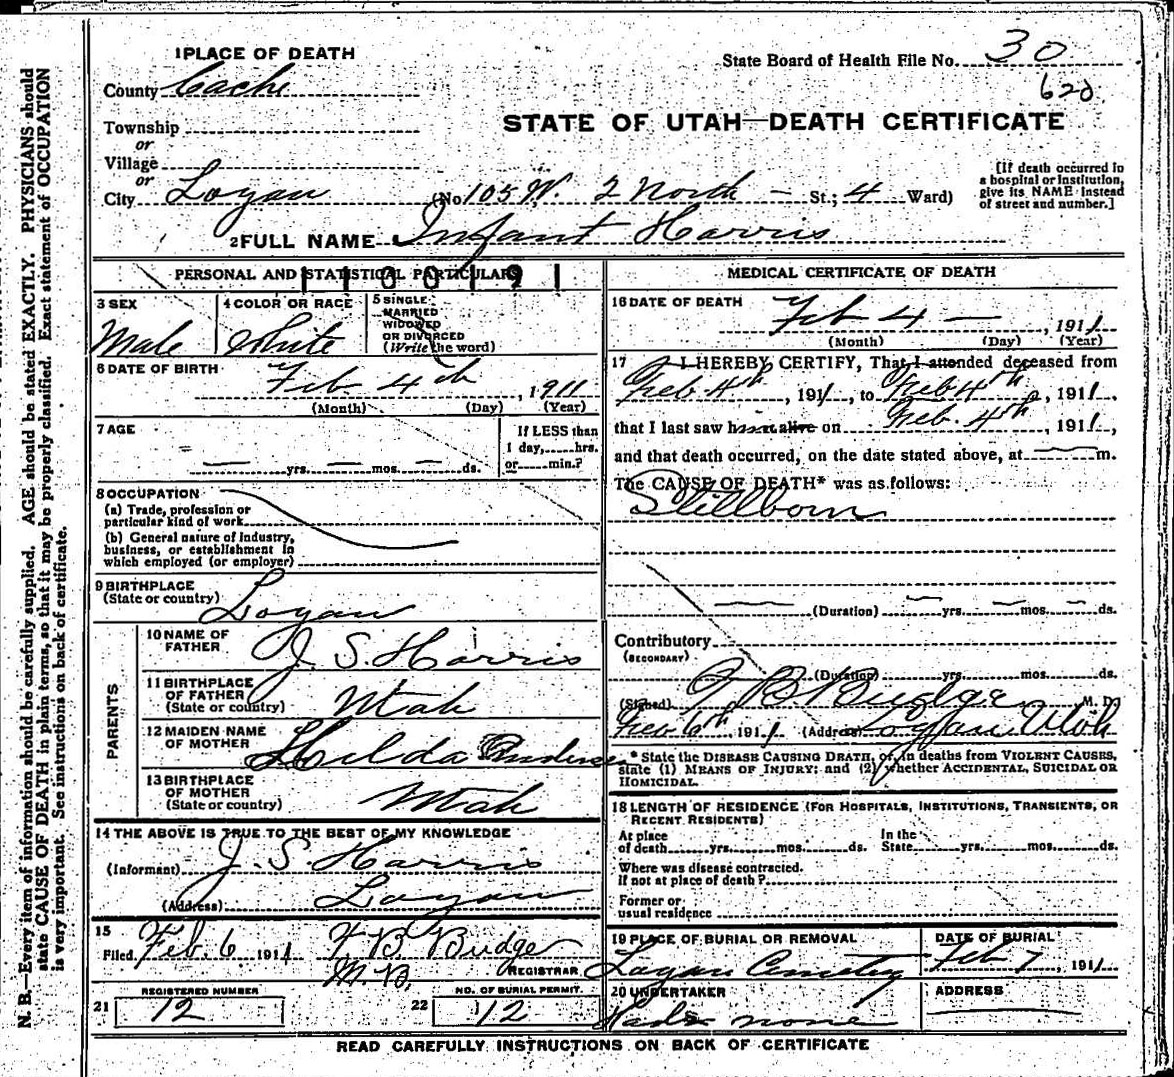 1 PLACE OF DEATH
State Board of Health File No. 30
County Cache
620
Township
STATE OF UTAH—DEATH CERTIFICATE
or
Village
or
City Logan (No 105 W. 2 North - St.; 4 Ward)
[If death occurred in
a hospital or institution,
give its NAME instead
of street and number.]
2 FULL NAME Infant Harris
PERSONAL AND STATISTICAL PARTICULARS
1100191
3 SEX
Male
4 COLOR OR RACE
White
5 SINGLE
MARRIED
WIDOWED
OR DIVORCED
(Write the word)
6 DATE OF BIRTH
Feb. 4th, 1911
(Month) (Day) (Year)
7 AGE
— yrs. — mos. — ds.
If LESS than
1 day,......hrs.
or......min.?
8 OCCUPATION
(a) Trade, profession or
particular kind of work
(b) General nature of industry,
business, or establishment in
which employed (or employer)
9 BIRTHPLACE
(State or country) Logan
PARENTS
10 NAME OF
FATHER J. S. Harris
11 BIRTHPLACE
OF FATHER
(State or country) Utah
12 MAIDEN NAME
OF MOTHER Hilda Andersen
13 BIRTHPLACE
OF MOTHER
(State or country) Utah
14 THE ABOVE IS TRUE TO THE BEST OF MY KNOWLEDGE
(Informant) J. S. Harris
(Address) Logan
15
Filed Feb. 6 1911 B Budge
REGISTRAR
21 REGISTERED NUMBER
12
22 NO. OF BURIAL PERMIT
12
MEDICAL CERTIFICATE OF DEATH
16 DATE OF DEATH
Feb 4 — , 1911
(Month) (Day) (Year)
17 I HEREBY CERTIFY, That I attended deceased from
Feb 4th, 1911, to Feb 4th, 1911,
that I last saw him alive on Feb. 4th, 1911,
and that death occurred, on the date stated above, at — m.
The CAUSE OF DEATH* was as follows:
Stillborn
— (Duration) — yrs. — mos. — ds.
Contributory
(SECONDARY)
(Duration) yrs. mos. ds.
(Signed) B. Budge M. D.
Feb 6th, 1911 (Address) Logan Utah
* State the DISEASE CAUSING DEATH, or, in deaths from VIOLENT CAUSES,
state (1) MEANS OF INJURY; and (2) whether ACCIDENTAL, SUICIDAL OR
HOMICIDAL.
18 LENGTH OF RESIDENCE (FOR HOSPITALS, INSTITUTIONS, TRANSIENTS, OR
RECENT RESIDENTS)
At place
of death yrs. mos. ds.
In the
State yrs. mos. ds.
Where was disease contracted.
If not at place of death?
Former or
usual residence
19 PLACE OF BURIAL OR REMOVAL
Logan Cemetery
DATE OF BURIAL
Feb 7, 1911
20 UNDERTAKER
Had none
ADDRESS
READ CAREFULLY INSTRUCTIONS ON BACK OF CERTIFICATE
N. B.—Every item of information should be carefully supplied. AGE should be stated EXACTLY. PHYSICIANS should
state CAUSE OF DEATH in plain terms, so that it may be properly classified. Exact statement of OCCUPATION
is very important. See instructions on back of certificate.